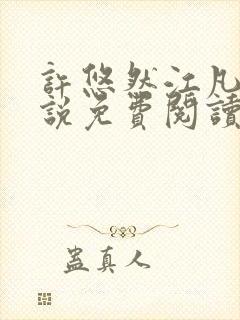 許悠然江凡
說免費閱讀
蠱真人